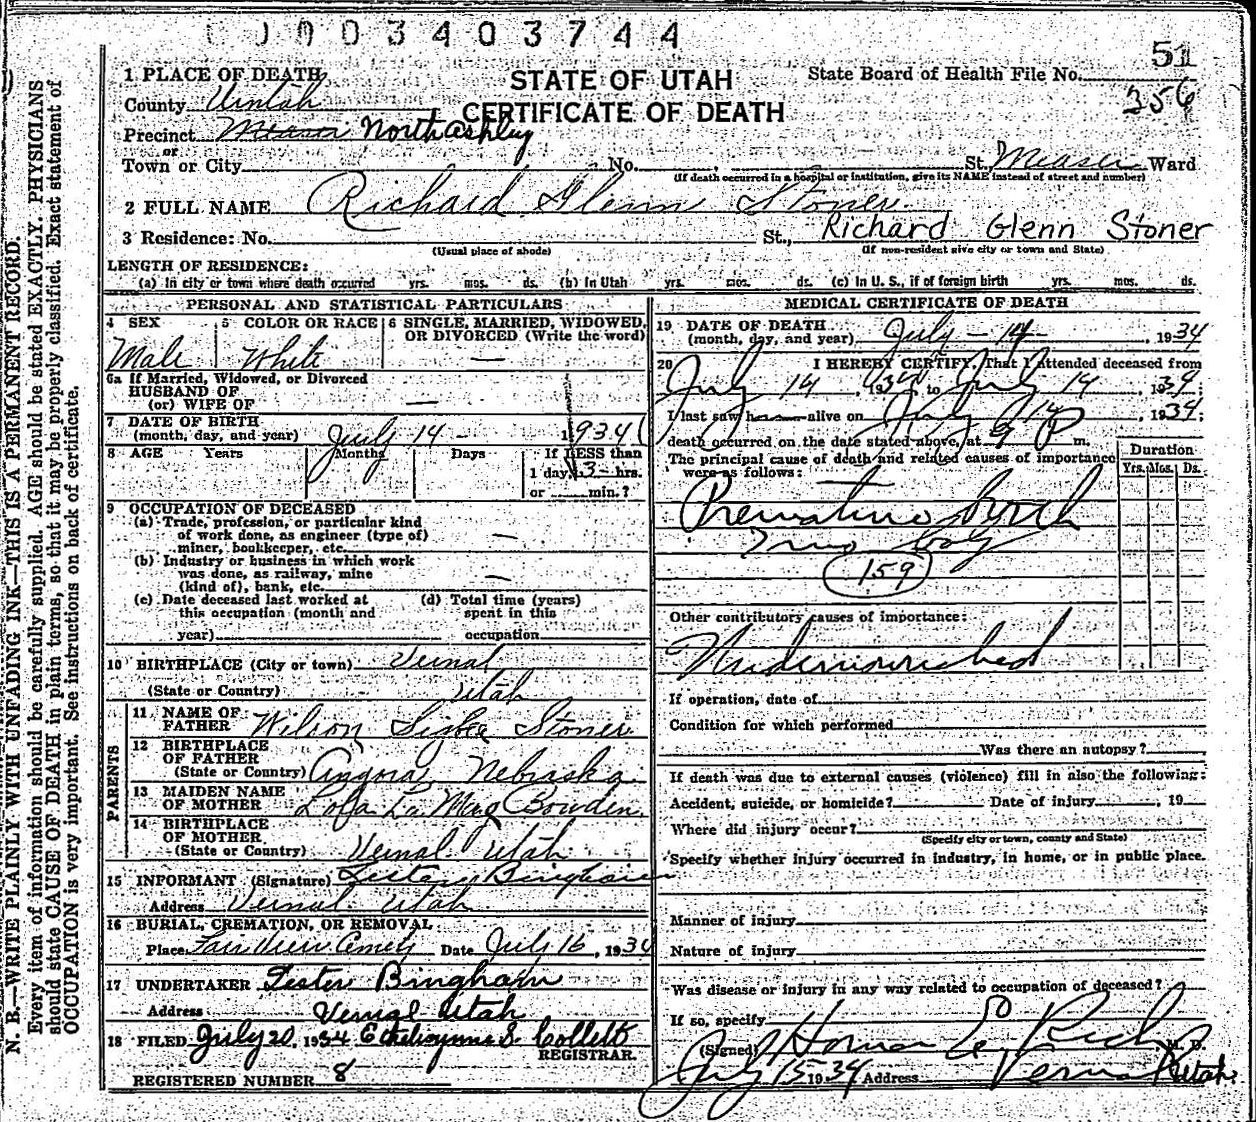 0003403744
51
1 PLACE OF DEATH
STATE OF UTAH
State Board of Health File No.
356
County Uintah
CERTIFICATE OF DEATH
Precinct North Ashley
or
Town or City No. St., Ward
(If death occurred in a hospital or institution, give its NAME instead of street and number)
2 FULL NAME Richard Glenn Stoner
3 Residence: No. St., Richard Glenn Stoner
(Usual place of abode) (If non-resident give city or town and State)
LENGTH OF RESIDENCE:
(a) In city or town where death occurred yrs. mos. ds. (b) In Utah yrs. mos. ds. (c) In U. S., if of foreign birth yrs. mos. ds.
PERSONAL AND STATISTICAL PARTICULARS
4 SEX 5 COLOR OR RACE 6 SINGLE, MARRIED, WIDOWED,
OR DIVORCED (Write the word)
Male White —
6a If Married, Widowed, or Divorced
HUSBAND OF
(or) WIFE OF —
7 DATE OF BIRTH
(month, day, and year) July 14 - 1934
8 AGE Years Months Days If LESS than
1 day, 3 hrs.
or min.?
9 OCCUPATION OF DECEASED
(a) Trade, profession, or particular kind
of work done, as engineer (type of)
miner, bookkeeper, etc. —
(b) Industry or business in which work
was done, as railway, mine
(kind of), bank, etc. —
(c) Date deceased last worked at (d) Total time (years)
this occupation (month and spent in this
year) occupation
10 BIRTHPLACE (City or town) Vernal
(State or Country) Utah
PARENTS
11 NAME OF
FATHER Wilson Sigbee Stoner
12 BIRTHPLACE
OF FATHER
(State or Country) Angora, Nebraska
13 MAIDEN NAME
OF MOTHER Lola La Bowden
14 BIRTHPLACE
OF MOTHER
(State or Country) Vernal Utah
15 INFORMANT (Signature) Bingham
Address Vernal Utah
16 BURIAL, CREMATION, OR REMOVAL
Place Date July 16, 1934
17 UNDERTAKER Lester Bingham
Address Vernal Utah
18 FILED July 20, 1934 S. Collett
REGISTRAR.
REGISTERED NUMBER 8
MEDICAL CERTIFICATE OF DEATH
19 DATE OF DEATH
(month, day, and year) July - 14 - , 1934
20 I HEREBY CERTIFY, That I attended deceased from
July 14, 1934, to July 14, 1934;
I last saw h alive on July 14, 1934;
death occurred on the date stated above, at 9 P m.
The principal cause of death and related causes of importance
were as follows:
Duration
Yrs. Mos. Ds.
Premature Birth
159
Other contributory causes of importance:
Undernourished
If operation, date of
Condition for which performed
Was there an autopsy?
If death was due to external causes (violence) fill in also the following:
Accident, suicide, or homicide? Date of injury , 19
Where did injury occur?
(Specify city or town, county and State)
Specify whether injury occurred in industry, in home, or in public place.
Manner of injury
Nature of injury
Was disease or injury in any way related to occupation of deceased?
If so, specify
(Signed) E. Rich M. D.
July 15 1934 Address Vernal Utah
N. B.—WRITE PLAINLY WITH UNFADING INK—THIS IS A PERMANENT RECORD.
Every item of information should be carefully supplied. AGE should be stated EXACTLY. PHYSICIANS
should state CAUSE OF DEATH in plain terms, so that it may be properly classified. Exact statement of
OCCUPATION is very important. See instructions on back of certificate.